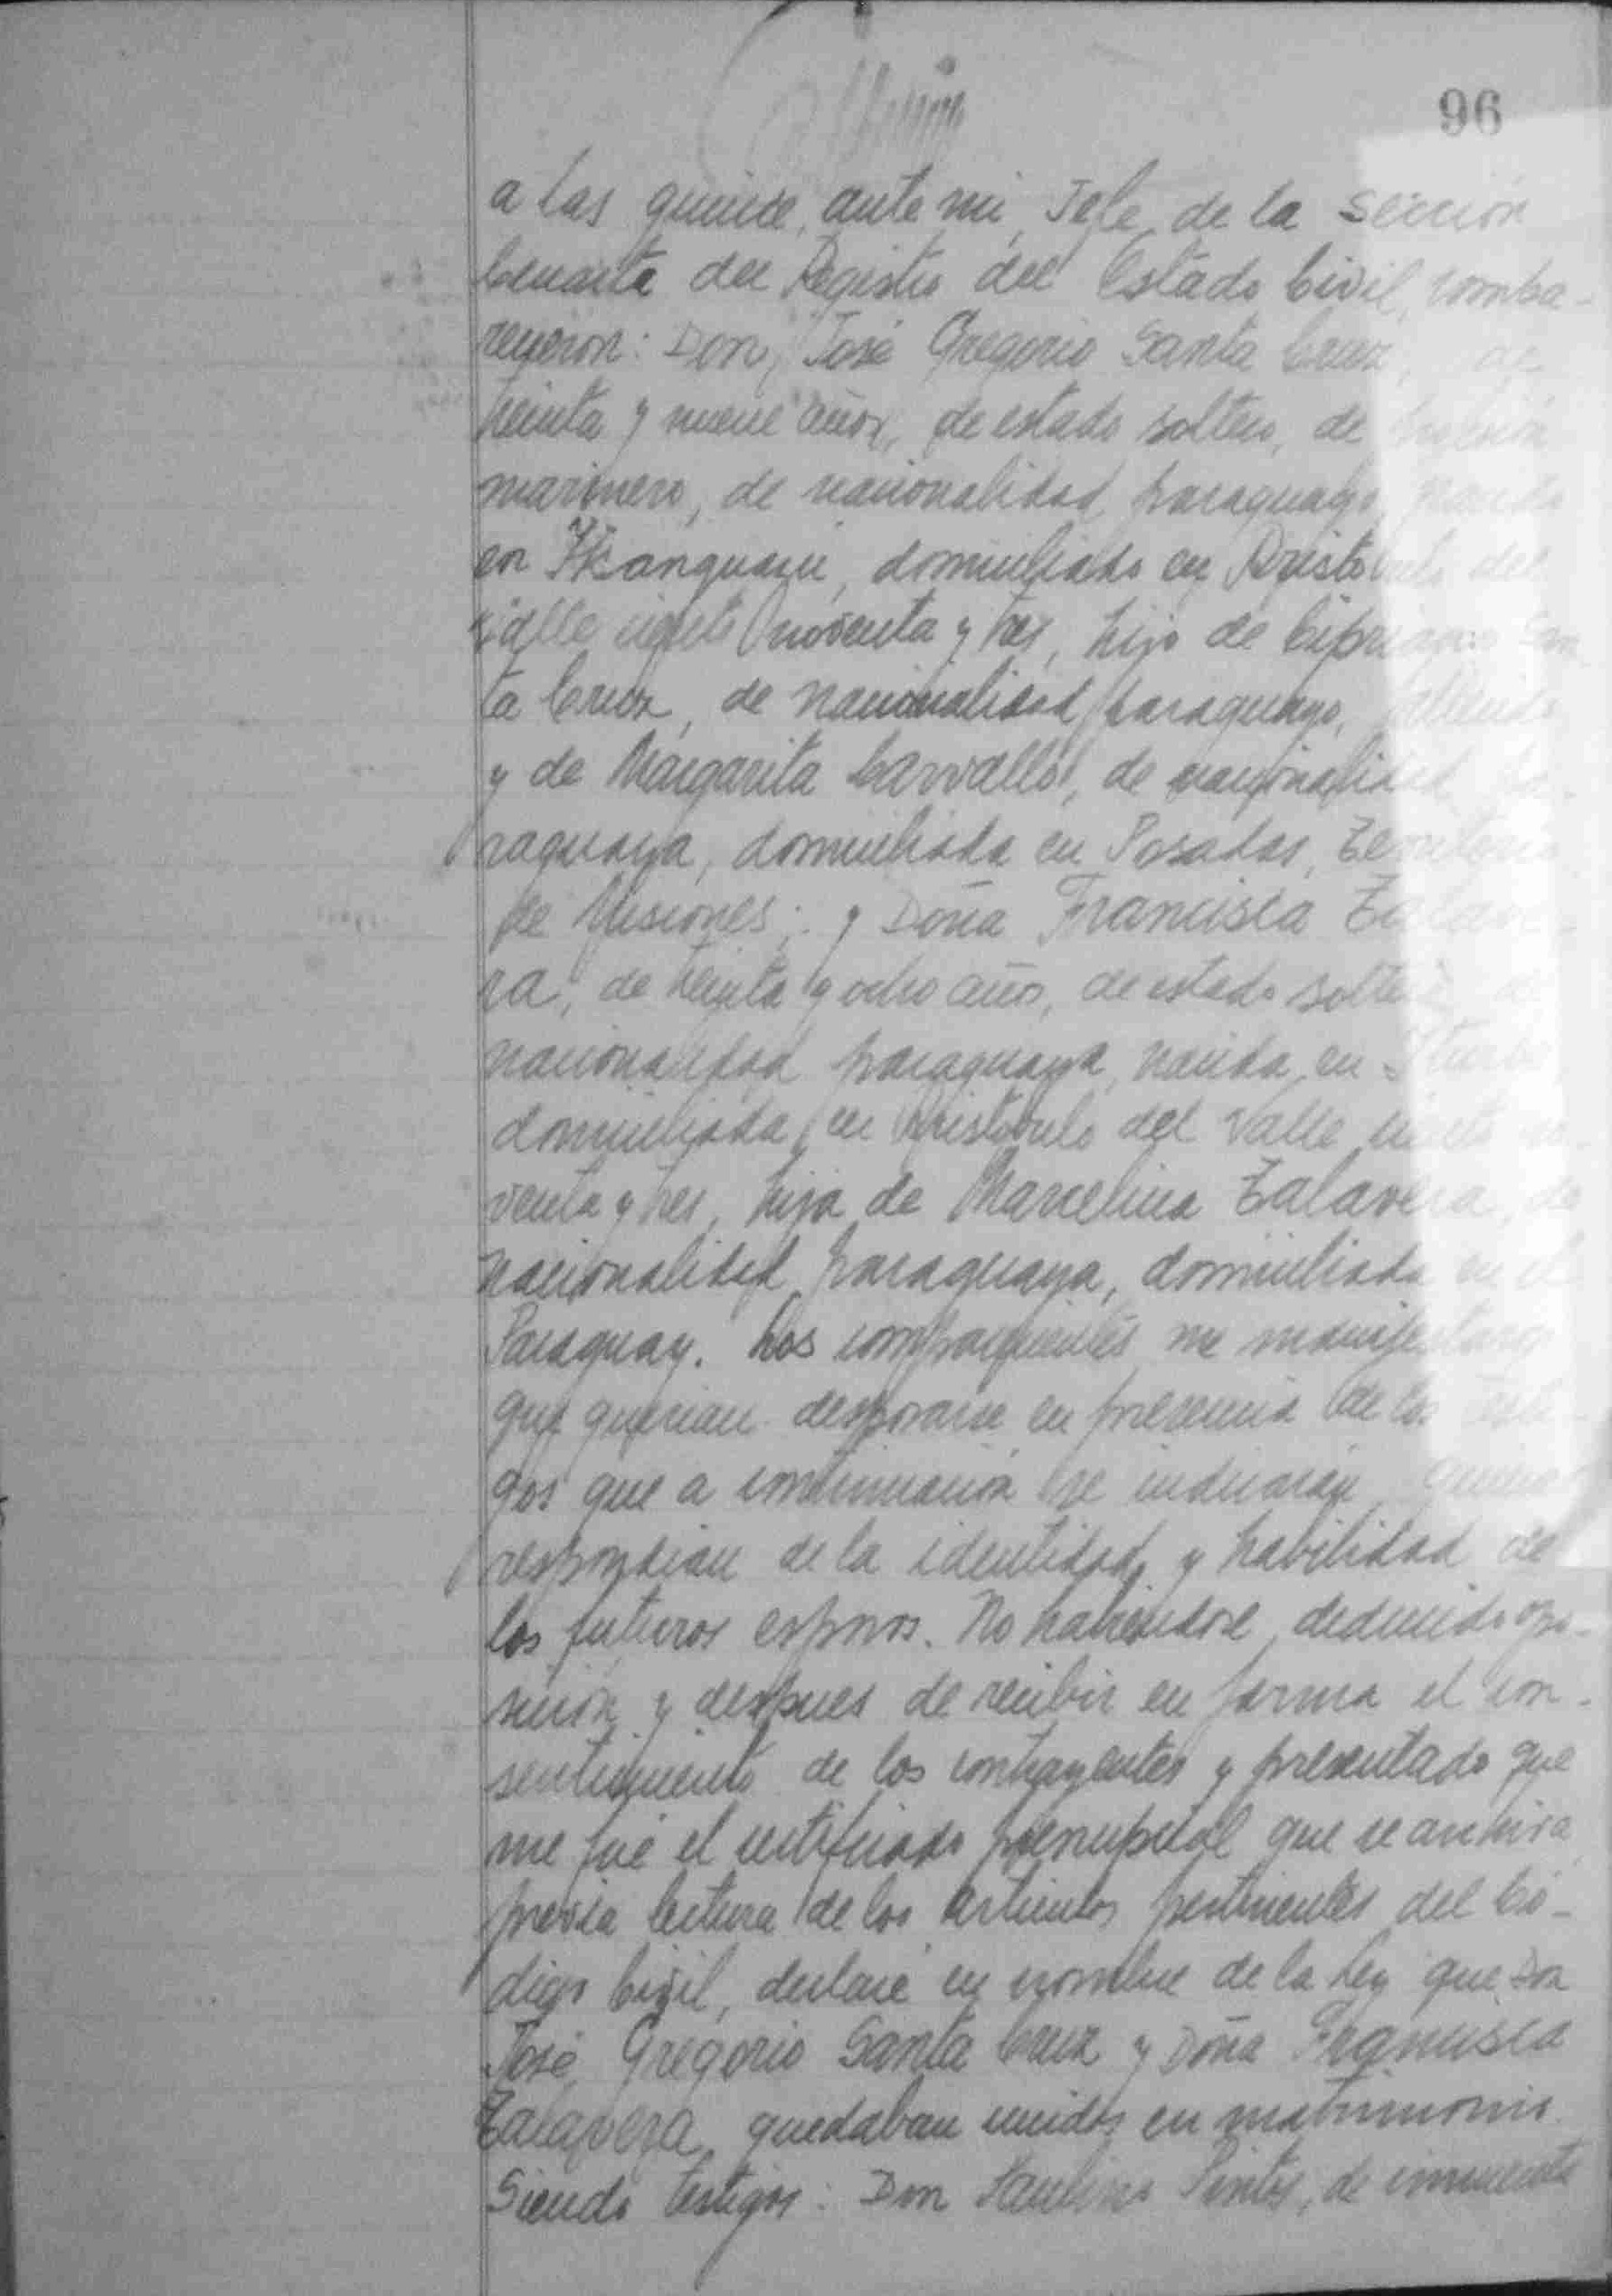 96
a las quince, ante mi, Jefe de la Sección
Cuarta del Registro del Estado Civil, compa-
recieron: Don José Gregorio Santa Cruz, de
treinta y nueve años, de estado soltero, de profesión
marinero, de nacionalidad paraguayo, nacido
en domiciliado en Aristobulo del
Valle ciento noventa y tres, hijo de Cipriano San
ta Cruz, de nacionalidad paraguayo, fallecido
y de Margarita Carvallo, de nacionalidad pa-
raguaya, domiciliada en Posadas, Territorio
de Misiones; y Doña Francisca Talave-
ra, de treinta y ocho años, de estado soltera, de
nacionalidad paraguaya, nacida en
domiciliada en Aristobulo del Valle ciento no-
venta y tres, hija de Marcelina Talavera, de
nacionalidad paraguaya, domiciliada en el
Paraguay. Los comparecientes me manifestaron
que querian desposarse en presencia de los testi-
gos que a continuación se indicarán, quienes
respondian de la identidad y habilidad de
los futuros esposos. No habiendose deducido opo-
sición y despues de recibir en forma el con-
sentimiento de los contrayentes y presentado que
me fué el certificado prenupcial que se archiva,
previa lectura de los articulos pertinentes del Có-
digo Civil, declaré en nombre de la ley que Don
José Gregorio Santa Cruz y Doña Francisca
Talavera, quedaban unidos en matrimonio
Siendo testigos: Don Paulino Pintos, de cincuenta